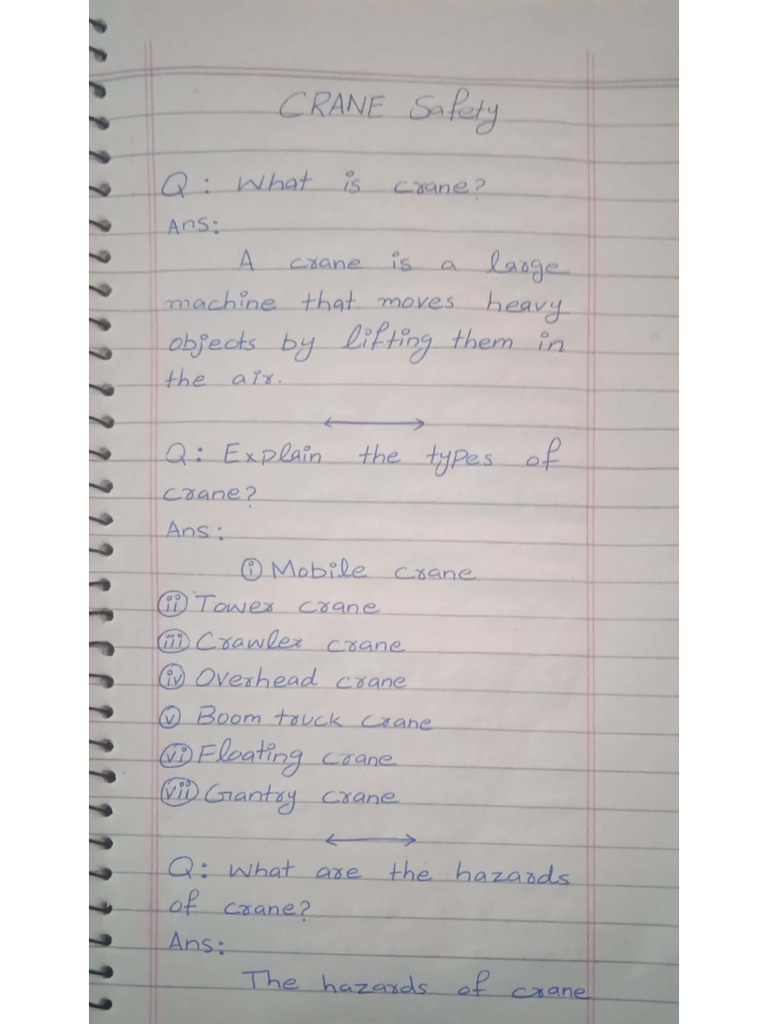 CRANE Safety
Q: What is crane?
Ans:
A crane is a large
machine that moves heavy
objects by lifting them in
the air.
Q: Explain the types of
crane?
Ans:
i Mobile crane
ii Tower crane
iii Crawler crane
iv Overhead crane
v Boom truck crane
vi Floating crane
vii Gantry crane
Q: What are the hazards
of crane?
Ans:
The hazards of crane